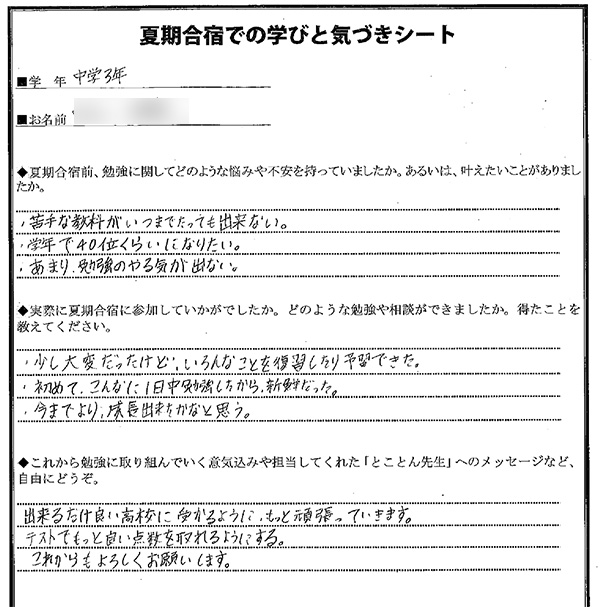 夏期合宿での学びと気づきシート
■学　年 中学3年
■お名前
◆夏期合宿前、勉強に関してどのような悩みや不安を持っていましたか。あるいは、叶えたいことがありまし
たか。
・苦手な教科がいつまでたっても出来ない。
・学年で40位くらいになりたい。
・あまり、勉強のやる気が出ない。
◆実際に夏期合宿に参加していかがでしたか。どのような勉強や相談ができましたか。得たことを
教えてください。
・少し大変だったけど、いろんなことを復習したり予習できた。
・初めて、こんなに1日中勉強したから、新鮮だった。
・今までより、成長出来たかなと思う。
◆これから勉強に取り組んでいく意気込みや担当してくれた「とことん先生」へのメッセージなど、
自由にどうぞ。
出来るだけ良い高校に受かるように、もっと頑張っていきます。
テストでもっと良い点数を取れるようにする。
これからもよろしくお願いします。